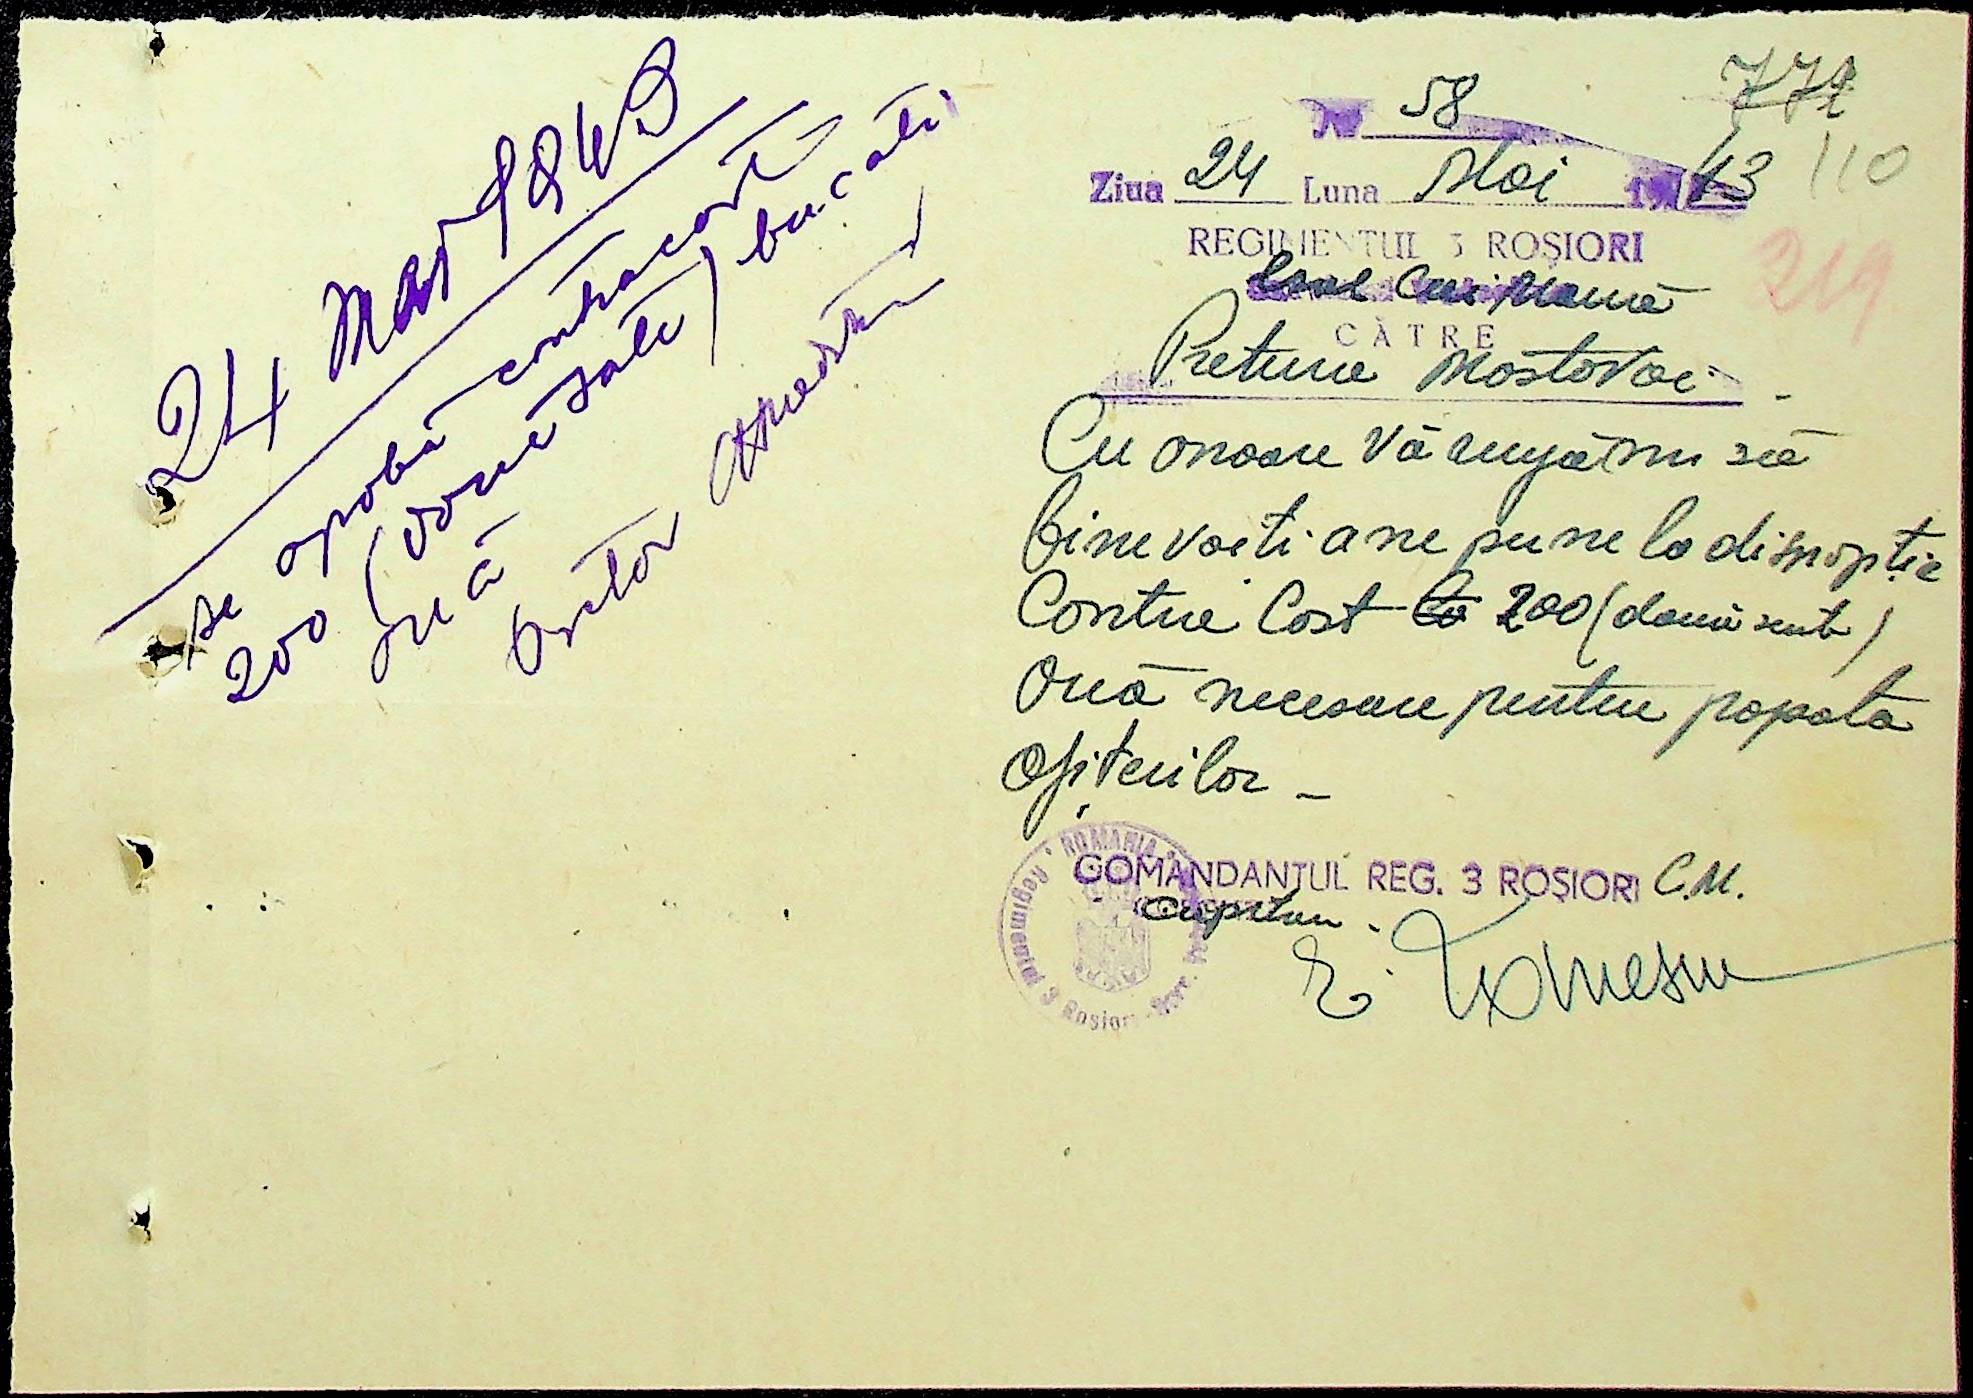 24 Mai 1943
se aproba contracost
200 (doue sute) bucati
ouă
Pretor
Nr 58
774
Ziua 24 Luna Mai 1943
110
219
REGIMENTUL 3 ROȘIORI
CĂTRE
Preturie Mostovoi
Cu onoare Vă rugăm să
binevoiti a ne pune la dispoptie
Contre Cost 200 (două sute)
Ouă necesare pentru popota
Ofițerilor
COMANDANTUL REG. 3 ROȘIORI C.M.
Capitan
ROMANIA
Regimentul 3 Roșiori